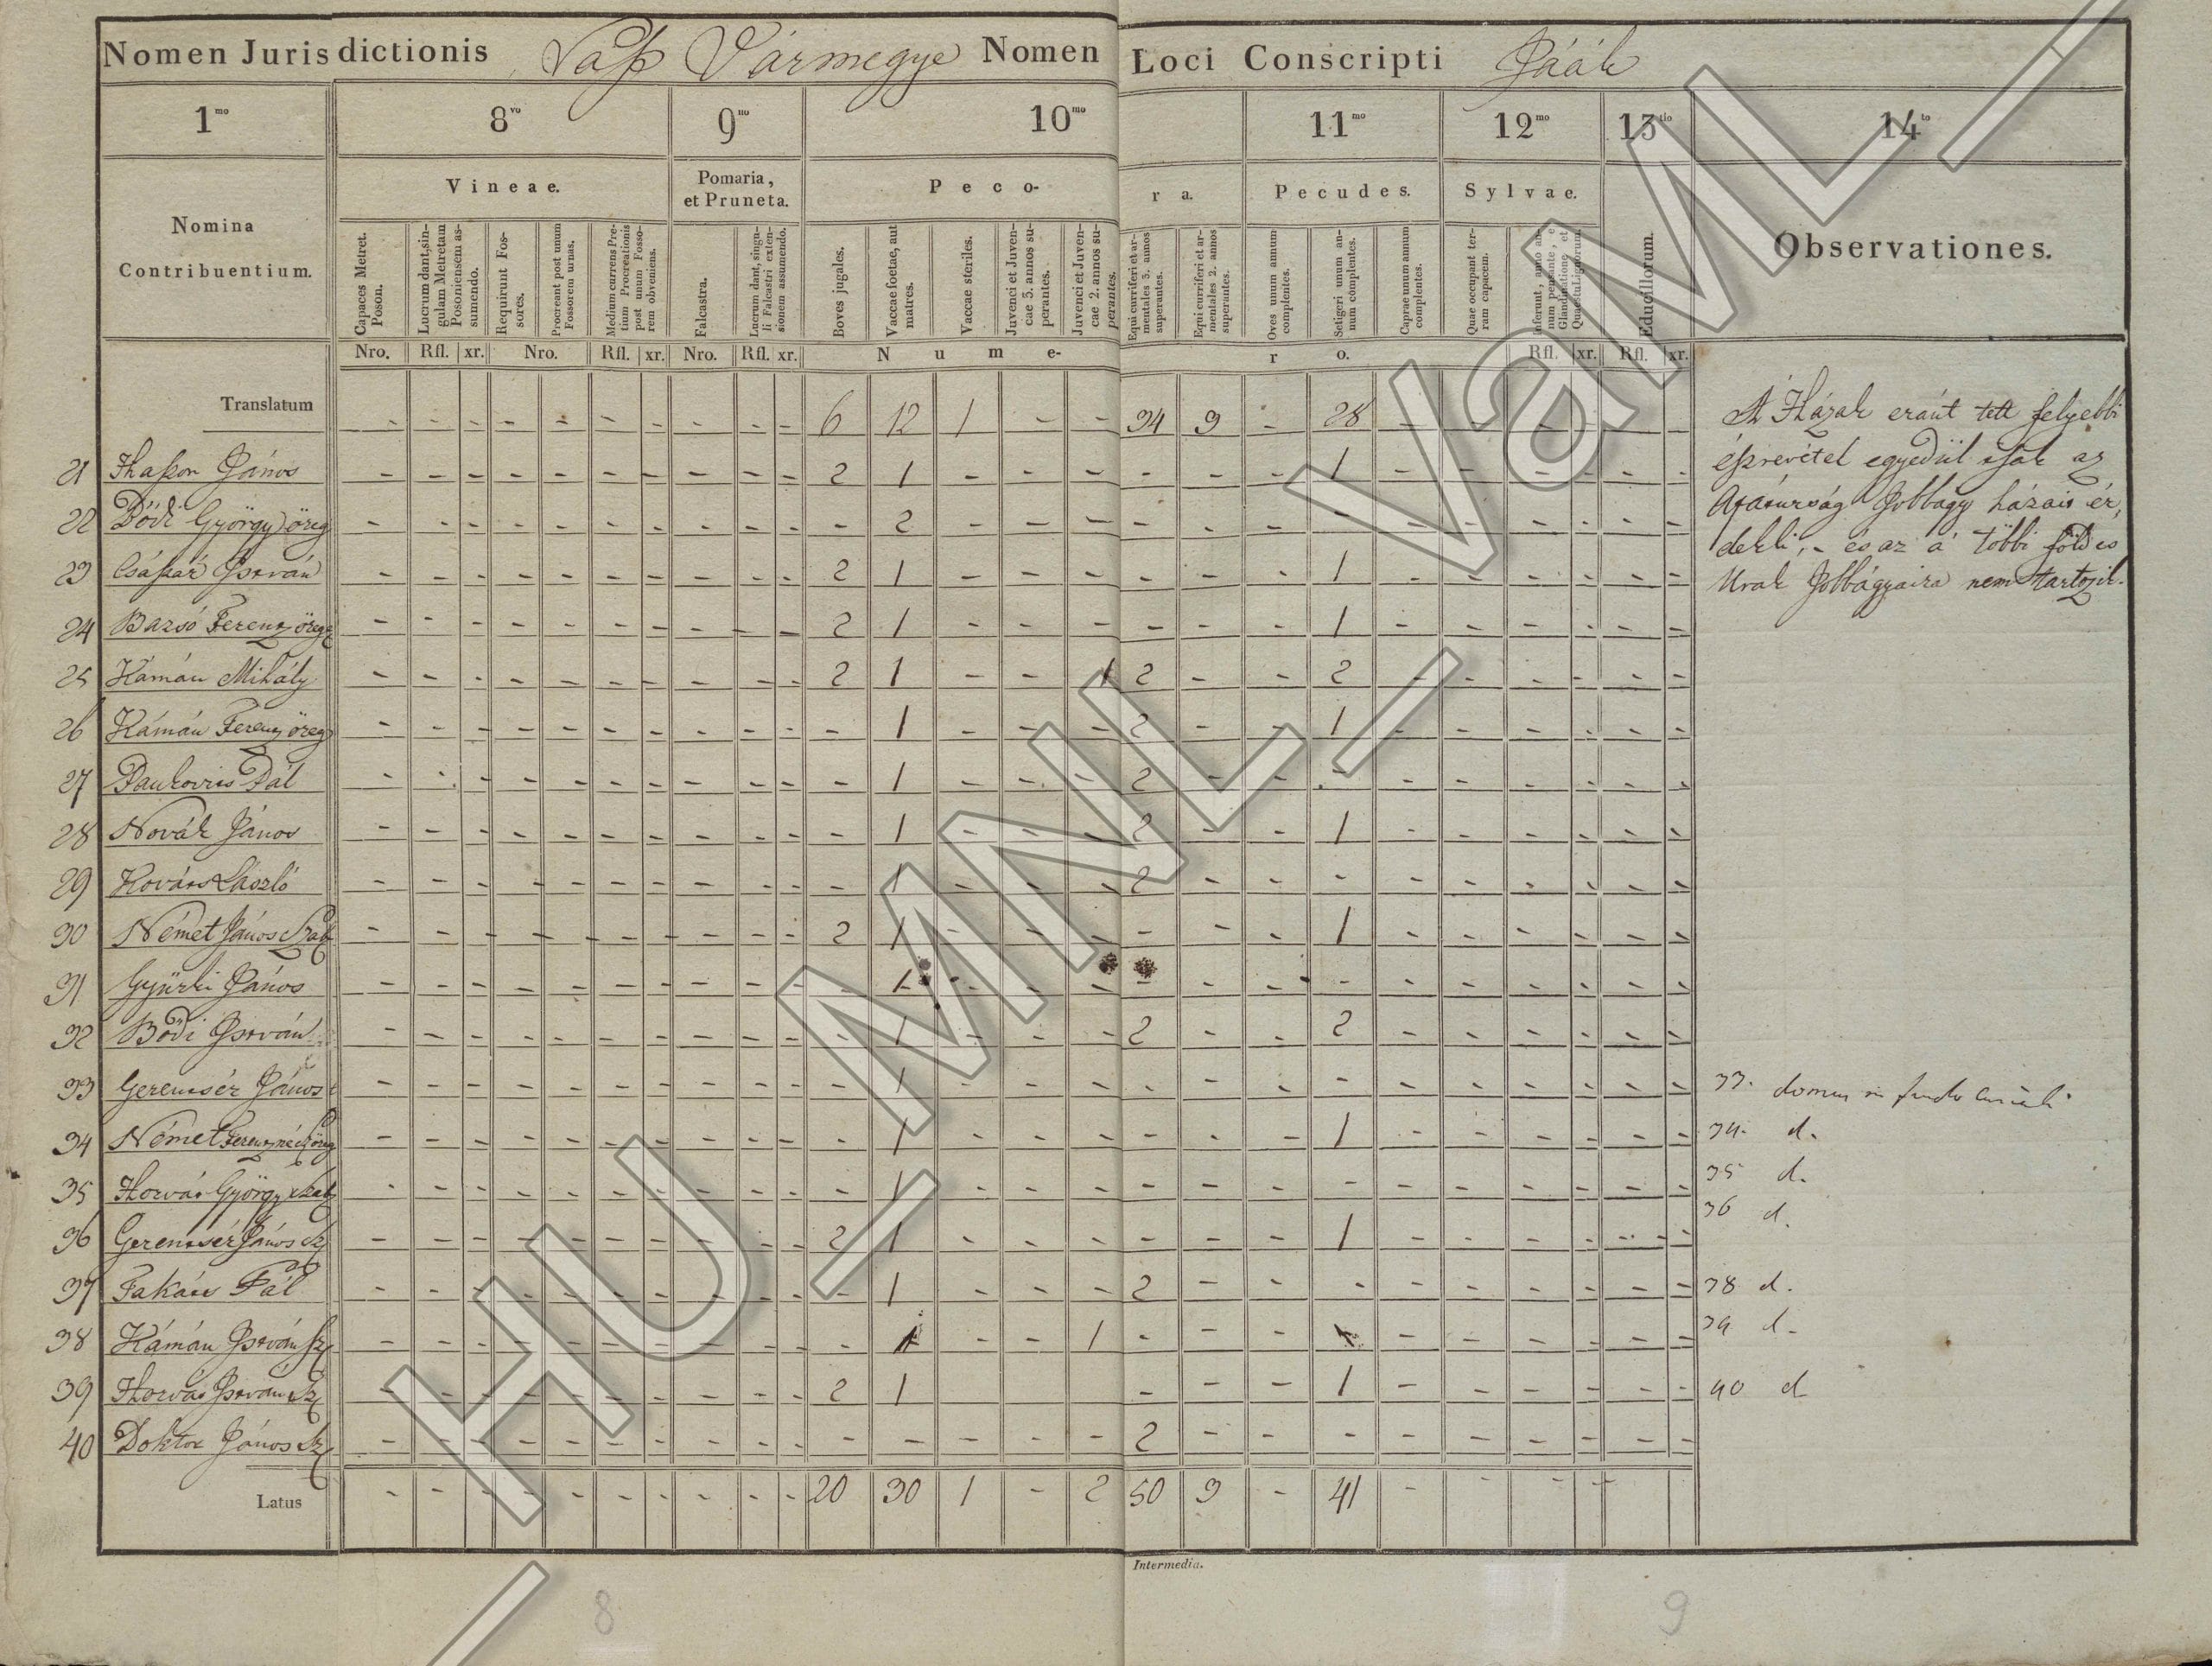 Nomen Jurisdictionis Vaſs Vármegye Nomen Loci Conscripti Jáák
1mo 8vo 9no 10mo 11mo 12mo 13tio 14to
Nomina Contribuentium. Vineae. Pomaria, et Pruneta. Peco- ra. Pecudes. Sylvae. Educillorum. Observationes.
Capaces Metret. Poson.
Lucrum dant, singulam Metretam Posoniensem assumendo.
Requirunt Fossores.
Procreant post unum Fossorem urnas.
Medium currens Pretium Procreationis post unum Fossorem obveniens.
Falcastra.
Lucrum dant, singuli Falcastri extensionem assumendo.
Boves jugales.
Vaccae foetae, aut matres.
Vaccae steriles.
Juvenci et Juvencae 3. annos superantes.
Juvenci et Juvencae 2. annos superantes.
Equi curriferi et armentales 3. annos superantes.
Equi curriferi et armentales 2. annos superantes.
Oves unum annum complentes.
Setigeri unum annum complentes.
Caprae unum annum complentes.
Quae occupant terram capacem.
Inferunt, anno annum pensante, e Glandinatione, et Quaestu Lignorum.
Nro. Rfl. xr. Nro. Rfl. xr. Nro. Rfl. xr. N u m e- r o. Rfl. xr. Rfl. xr.
Translatum - - - - - - - - - - 6 12 1 - - 34 9 - 28 - - - - - -
21 János - - - - - - - - - - 2 1 - - - - - - 1 - - - - - -
22 Bödi György öreg - - - - - - - - - - - 2 - - - - - - - - - - - - -
23 Császár István - - - - - - - - - - 2 1 - - - - - - 1 - - - - - -
24 Bazsó Ferencz öreg - - - - - - - - - - 2 1 - - - - - - 1 - - - - - -
25 Kámán Mihály - - - - - - - - - - 2 1 - - 1 2 - - 2 - - - - - -
26 Kámán Ferencz öreg - - - - - - - - - - - 1 - - - 2 - - 1 - - - - - -
27 Paukovics Pál - - - - - - - - - - - 1 - - - 2 - - - - - - - - -
28 Novák János - - - - - - - - - - - 1 - - - 2 - - 1 - - - - - -
29 Kovács László - - - - - - - - - - - 1 - - - 2 - - - - - - - - -
30 Német János Szab - - - - - - - - - - 2 1 - - - - - - 1 - - - - - -
31 Gyürki János - - - - - - - - - - - 1 - - - - - - - - - - - - -
32 Bödi István - - - - - - - - - - - 1 - - - 2 - - 2 - - - - - -
33 Gerencsér János - - - - - - - - - - - 1 - - - - - - - - - - - - -
34 Német Ferencz öreg - - - - - - - - - - - 1 - - - - - - 1 - - - - - -
35 Horvát György Szab - - - - - - - - - - - 1 - - - - - - - - - - - - -
36 Gerencsér János Sz - - - - - - - - - - 2 1 - - - - - - 1 - - - - - -
37 Takács Pál - - - - - - - - - - - 1 - - - 2 - - - - - - - - -
38 Kámán István Sz - - - - - - - - - - - 1 - - 1 - - - 1 - - - - - -
39 Horvát István Sz - - - - - - - - - - 2 1 - - - 1 - - - - - -
40 Doktor János Sz - - - - - - - - - - - - - - - 2 - - - - - - - - -
Latus - - - - - - - - - - 20 30 1 - 2 50 9 - 41 - - - -
A Házak eránt tett felyebbi
észrevétel egyedül csak az
Apáturság Jobbágy házait ér,
dekli, - és az a' többi földes
Urak Jobbágyaira nem tartozik.
33. domus in fundo curiali
34. d.
35 d.
36 d.
38 d.
39 d.
40 d
Intermedia.
8 9
HU_MNL_VaML_